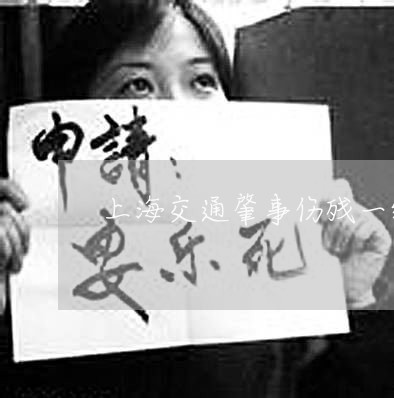 申請：
上海交通肇事伤残一
安乐死